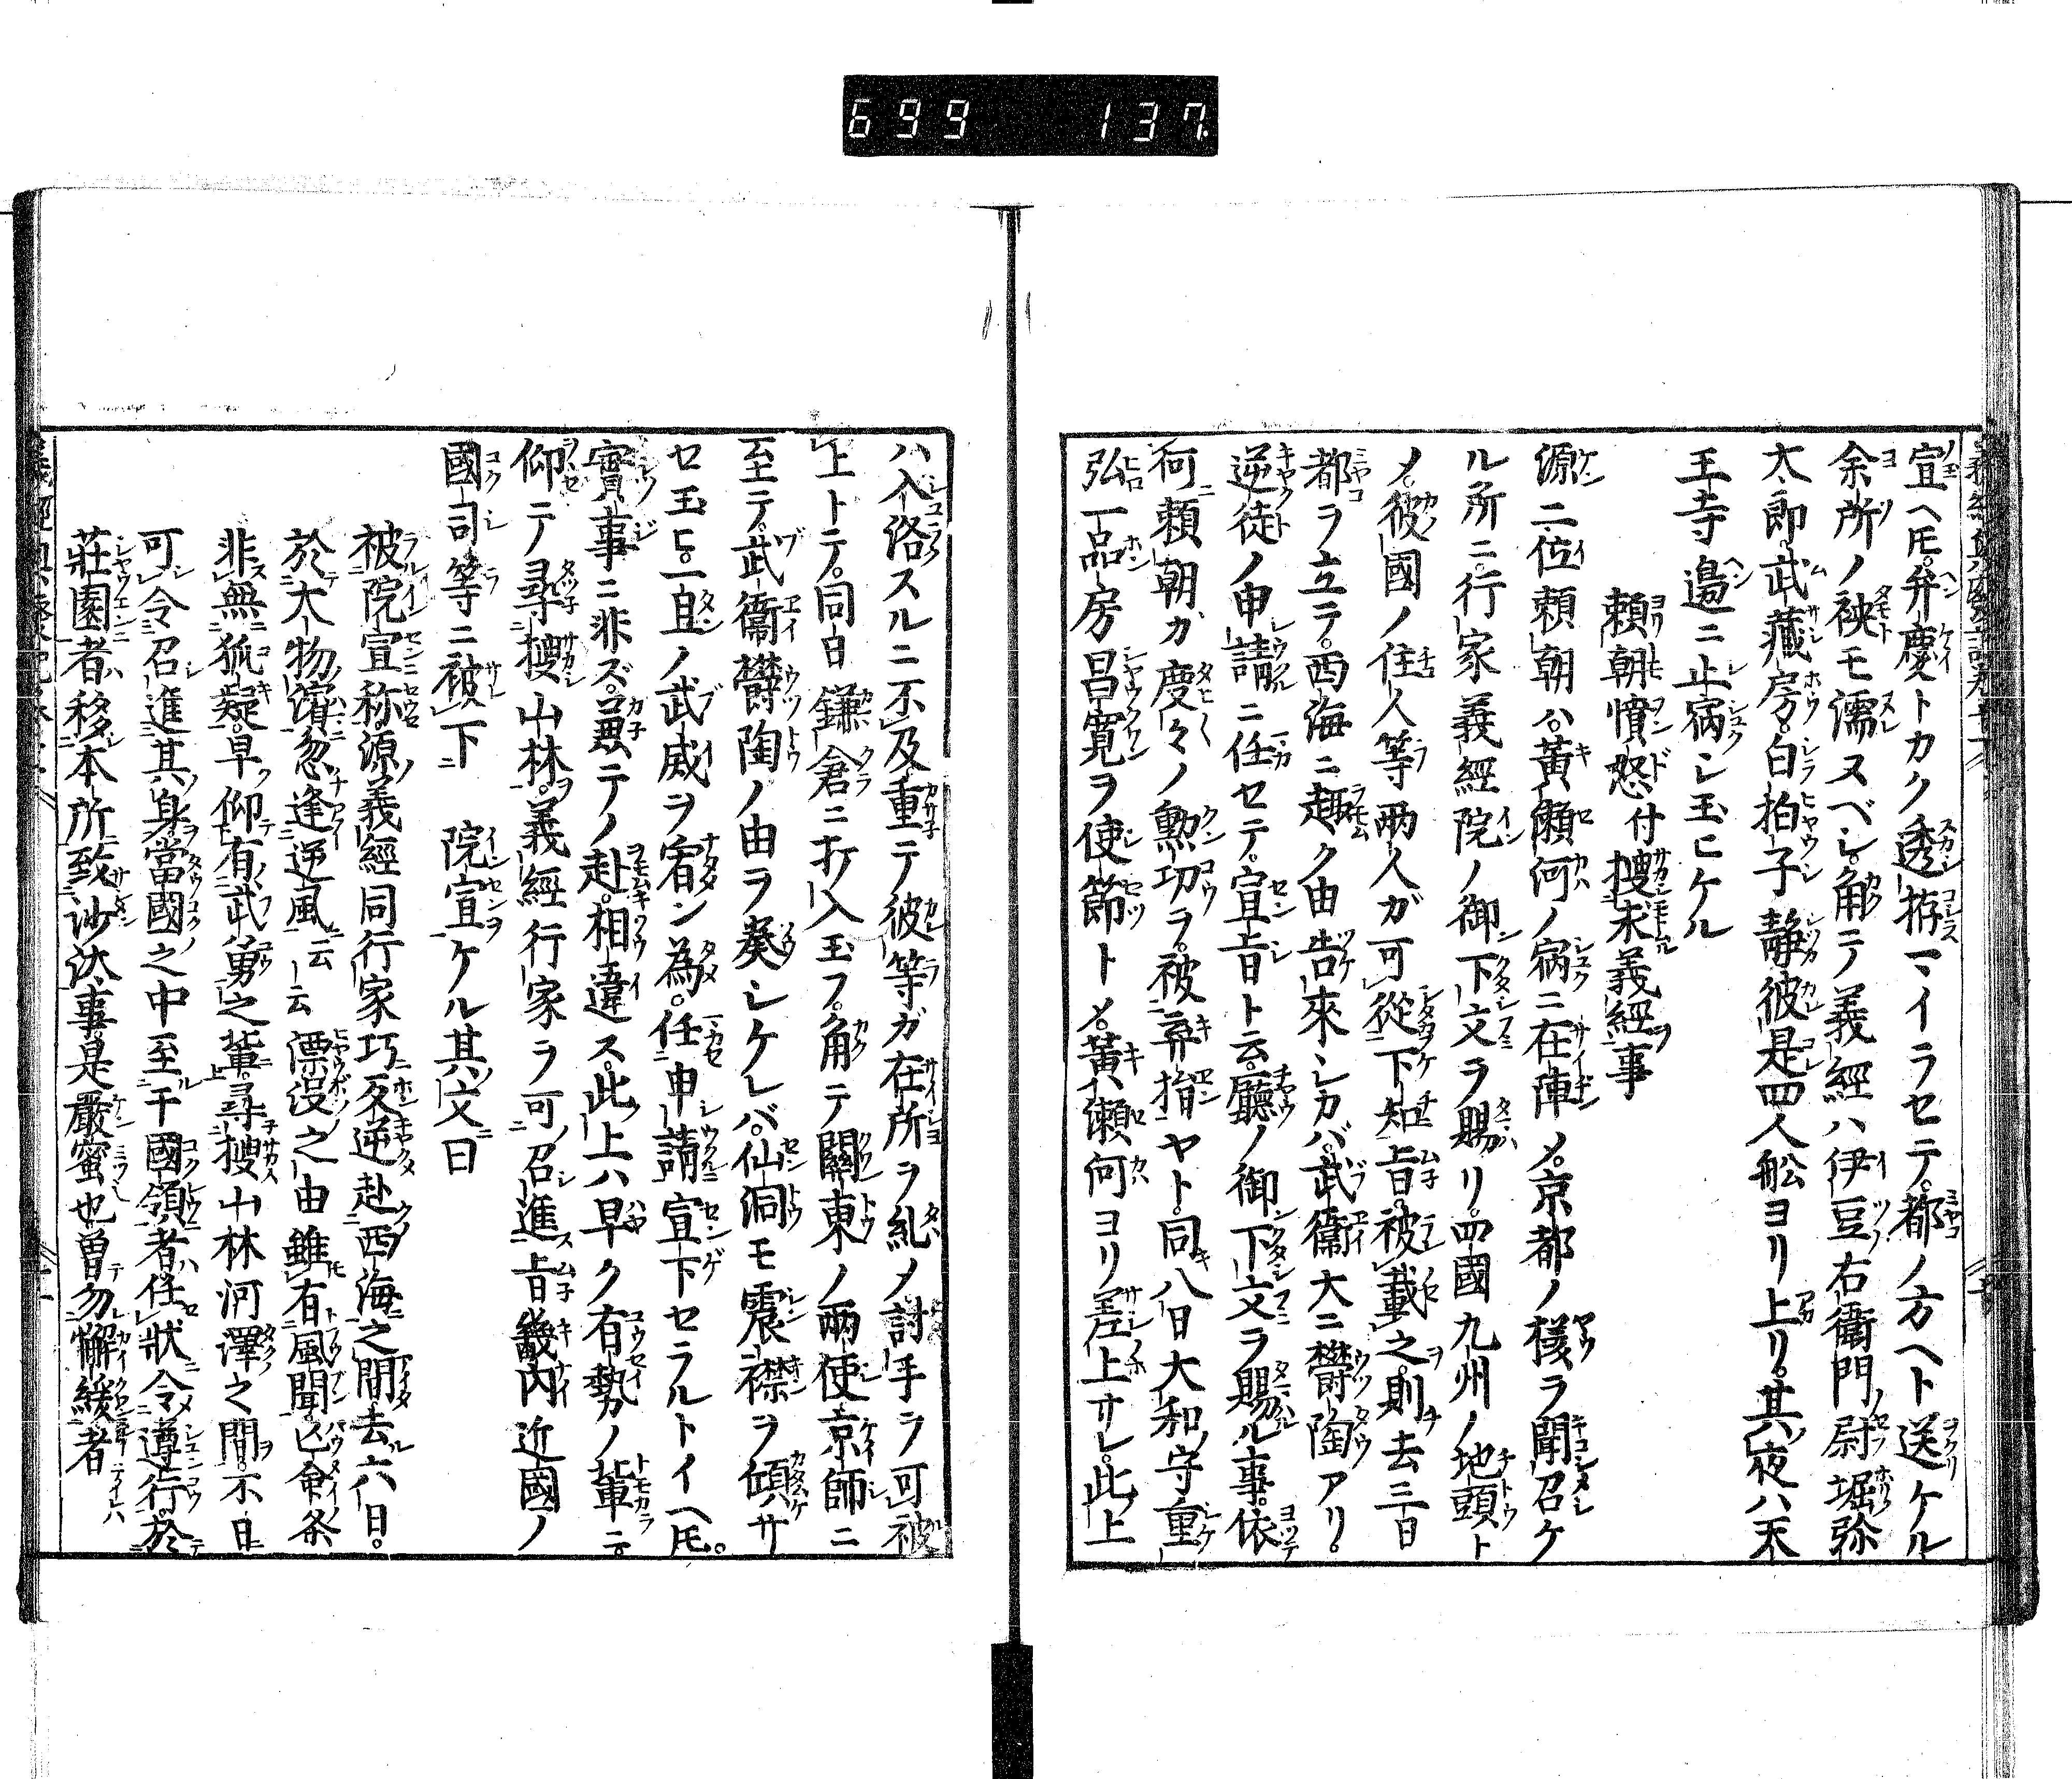 699 137
宣ヘ𪜈。弁慶トカク透拵マイラセテ。都ノ方ヘト送ケル
余所ノ袂モ濡ヌベシ。角テ義經ハ伊豆右衛門尉堀弥
太郎。武藏房。白拍子靜彼是四人舩ヨリ上リ。其夜ハ天
王寺邊ニ止宿シ玉ヒケル
頼朝憤怒付捜求義經事
源二位頼朝ハ。黄瀬河ノ宿ニ在陣メ。京都ノ様ヲ聞召ケ
ル所ニ。行家義經院ノ御下文ヲ賜リ。四國九州ノ地頭ト
メ。彼國ノ住人等兩人ガ可從下知旨。被載之則去三日
都ヲ立テ。西海ニ趣ク由告來シカバ。武衞大ニ欝陶アリ。
逆徒ノ申請ニ任セテ。宣旨ト云。廳ノ御下文ヲ賜ル事。依
何頼朝カ度々ノ勲功ヲ。被棄捐ヤト。同八日大和守重
弘一品房昌寛ヲ使節トメ。黄瀬河ヨリ差上サレ。此上
ハ入洛スルニ不及重テ彼等ガ在所ヲ糺メ。討手ヲ可被
上トテ。同日鎌倉ニ打入玉フ。角テ關東ノ兩使京師ニ
至テ。武衞欝陶ノ由ヲ奏シケレバ。仙洞モ震襟ヲ傾サ
セ玉ヒ。一旦ノ武威ヲ宥ン為。任申請宣下セラルトイヘ𪜈。
實事ニ非ズ。兼テノ赴。相違ス。此上ハ早ク有勢ノ輩ニ。
仰テ尋捜山林。義經行家ヲ可召進旨畿内近國ノ
國司等ニ被下 院宣ケル其文曰
被院宣称源義經同行家巧反逆赴西海之間去六日。
於大物濱忽逢逆風云云漂没之由雖有風聞亡命条
非無狐疑。早仰有武勇之輩。尋捜山林河澤之間。不日
可令召進其身。當國之中至于國領者任狀令遵行。於
莊園者移本所致沙汰事。是嚴蜜也曽勿懈緩者